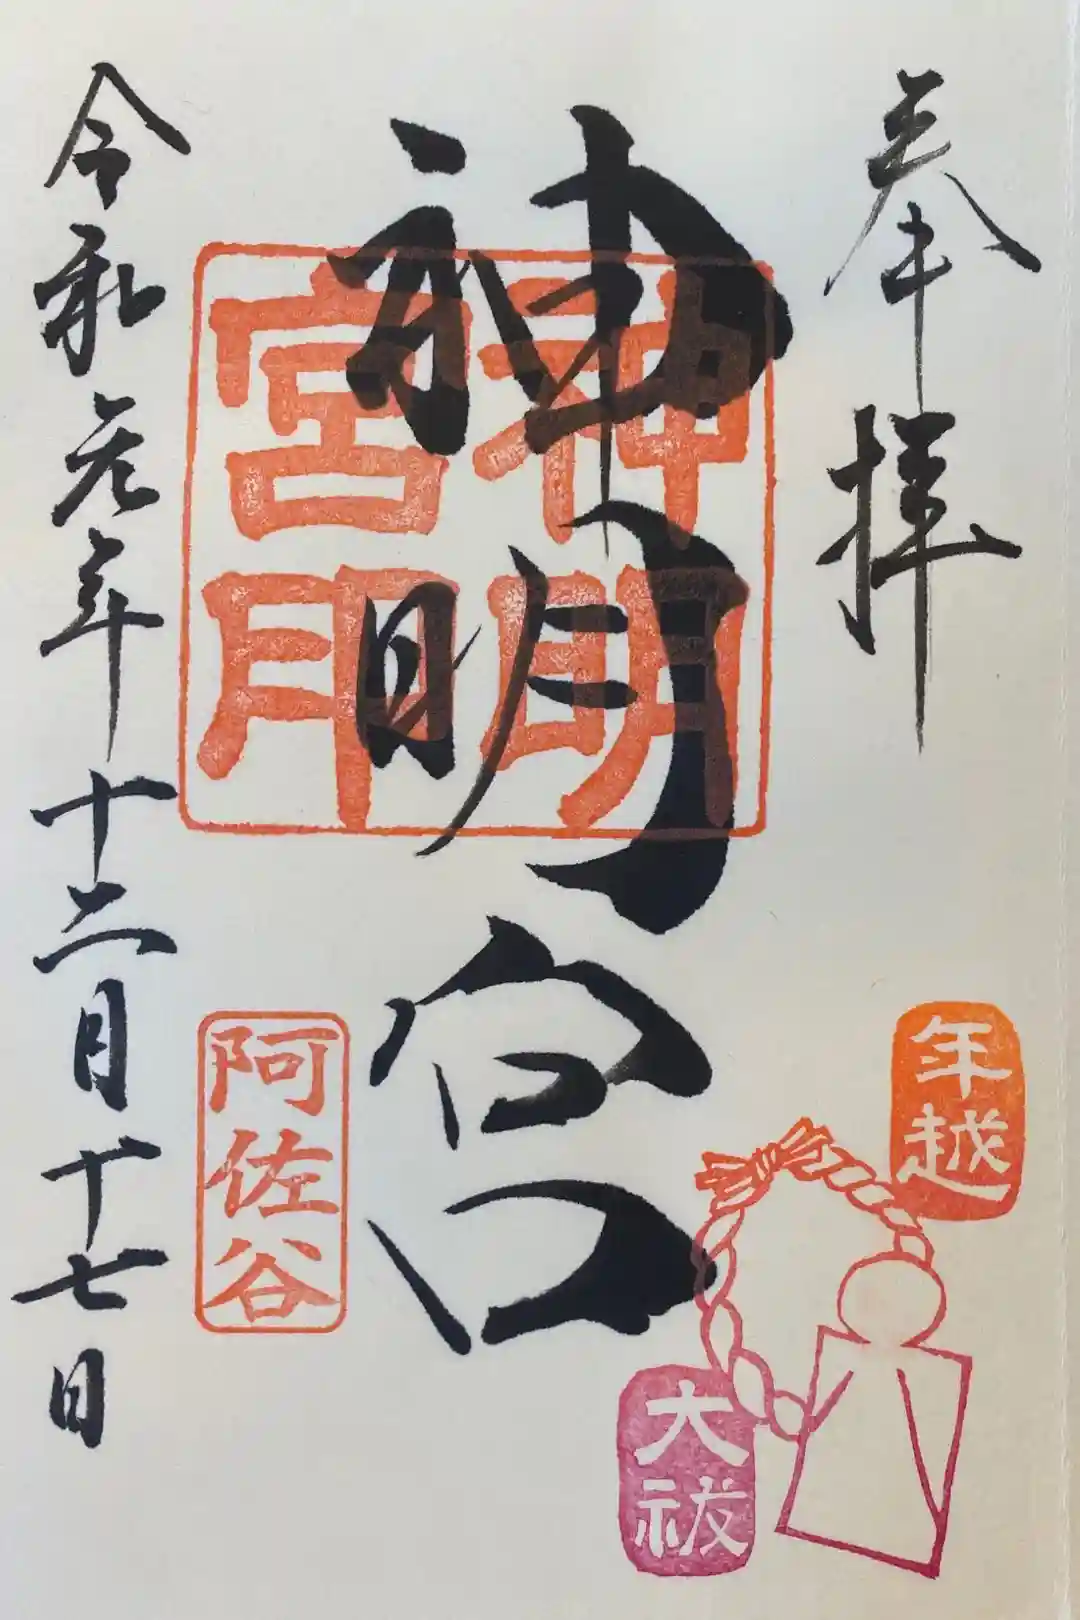 奉拝
年越
大祓
神明宮
神明宮印
阿佐谷
令和元年十二月十七日